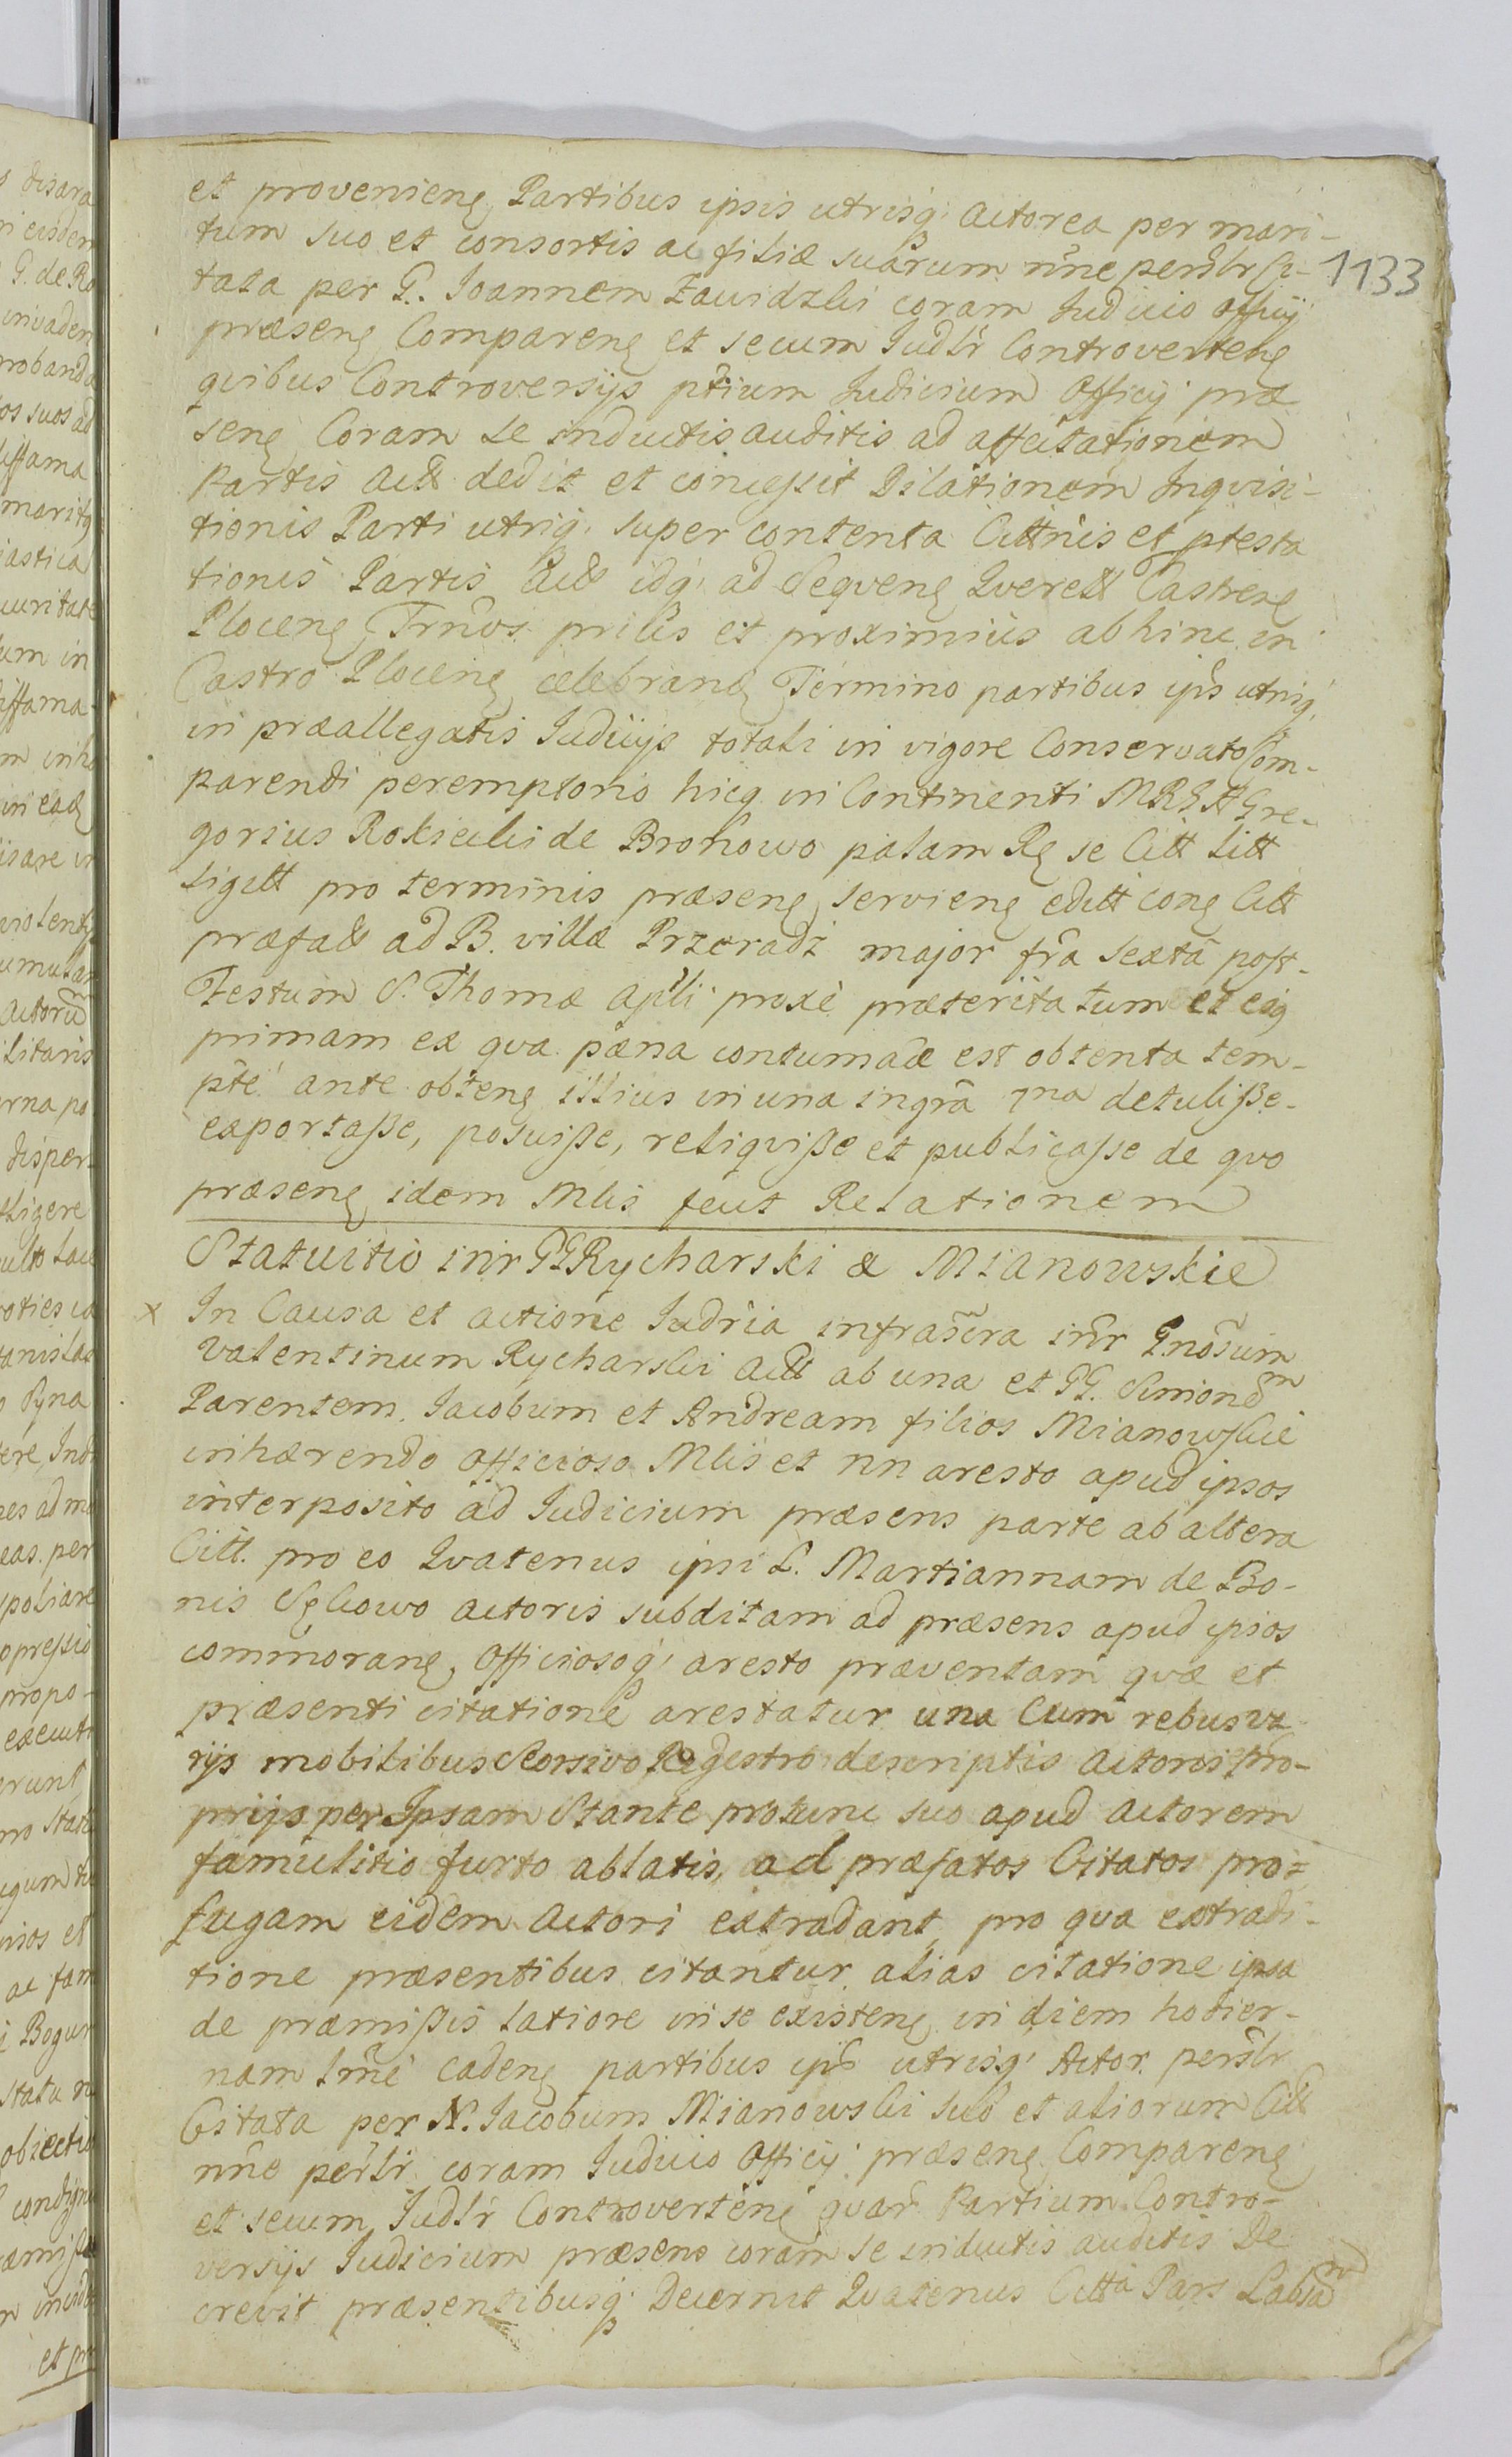 1133
et provenieng Partibus ipsis utrisq; Actorea per mari-
tum suo et consortis ac filiæ suarum nne persltr Ci-
tata per G. Joannem Zawidzki coram Judicio Officij
præseng Compareng et secum Judltr Controverteng
qvibus Controversijs ptium Judicium Officij præ
seng Coram se inductis auditis ad affectationem
Partis Actt dedit et concessit Dilationem Inqvisi-
tionis Parti utriq; super contenta Cittnis et ptesta
tionis Partis Actt idq; ad Seqveng Qverett Castreng
Ploceng Trnos prilis et proximius abhinc in
Castro Ploceng celebrand Termino partibus ips utriq;
in præallegatis Judicijs totali in vigore Conservato Com-
parendi peremptorio hicq in Continenti MRG A Gre-
gorius Rokicki de Bromowo palam Rg se Citt litt
sigitt pro terminis præseng servieng editt cong Citt
præfatt ad B. villæ Przeradz major fra sexta post
Festum S. Thomæ Apli proxe præterita tum et eiq
primam ex qva pæna contumaciæ est obtenta tem-
pte ante obteng illius in una ingra 7na detulisse
exportasse, posuisse, reliqvisse et publicasse de qvo
præseng idem Mlis fecit Relationem
Statuitio intr GG Rycharski & Mianowskie
x In Causa et actione Judria infrascra intr Gnosum
Valentinum Rycharski Actt ab una et GG. Simionem
Parentem, Jacobum et Andream filios Mianowskie
inhærendo Officioso Mlis et nn aresto apud ipsos
interposito ad Judicium præsens parte ab altera
Citt. pro eo Qvatenus ipsi L. Martiannam de Bo-
nis Sękowo actoris subditam ad præsens apud ipsos
commorang, Officiosoq; aresto præventam qvæ et
præsenti citatione arestatur una Cum rebus va
rijs mobilibus Seorsivo Regestro descriptis Actoris Pro-
prijs per Ipsam Stante protunc suo apud Actorem
famulitio furto ablatis, ad præfatos Citatos pro=
fugam eidem Actori extradant, pro qva extradi-
tione præsentibus citantur alias citatione ipsa
de præmissis latiore in se existeng in diem hodier-
nam lme cadeng partibus ips utrisq; Actor persltr
Citata per N. Jacobum Mianowski suo et aliorum Citt
nne persltr coram Judicio Officij præseng Compareng
et secum Judltr Controverteng qvar Partium Contro-
versijs Judicium præsens coram se inductis auditis De
crevit præsentibusq; Decernit Qvatenus Citta Pars Labsam